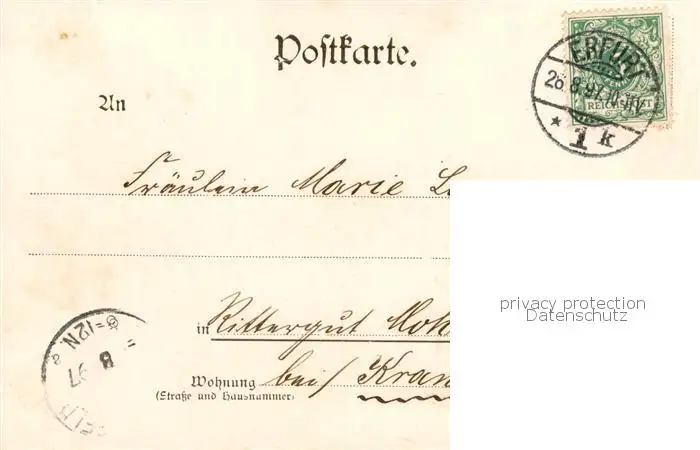 Postkarte.
ERFURT
26.8.97.
REICHSPOST
* 1 k
An
Fräulein Marie
in Rittergut
Wohnung bei
(Straße und Hausnummer)
6=12N
8 97
privacy protection
Datenschutz